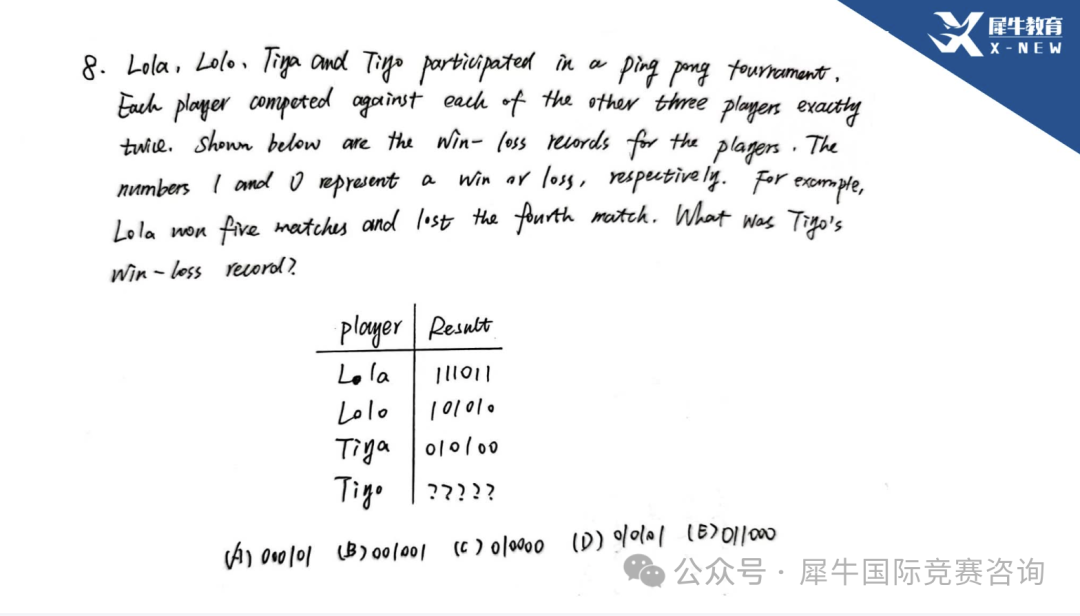 犀牛教育
X-NEW
8. Lola, Lolo, Tiya and Tiyo participated in a ping pong tournament.
Each player competed against each of the other three players exactly
twice. Shown below are the win-loss records for the players. The
numbers 1 and 0 represent a win or loss, respectively. For example,
Lola won five matches and lost the fourth match. What was Tiyo's
win-loss record?
player Result
Lola 111011
Lolo 101010
Tiya 010100
Tiyo ?????
(A) 000101 (B) 001001 (C) 010000 (D) 010101 (E) 011000
公众号 · 犀牛国际竞赛咨询